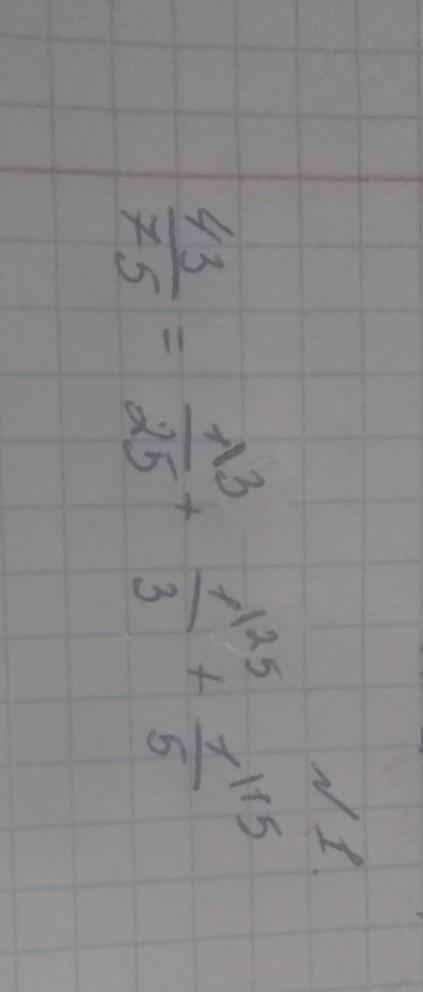 N 1.
43/75 = 1\3/25 + 1\25/3 + 1\15/5